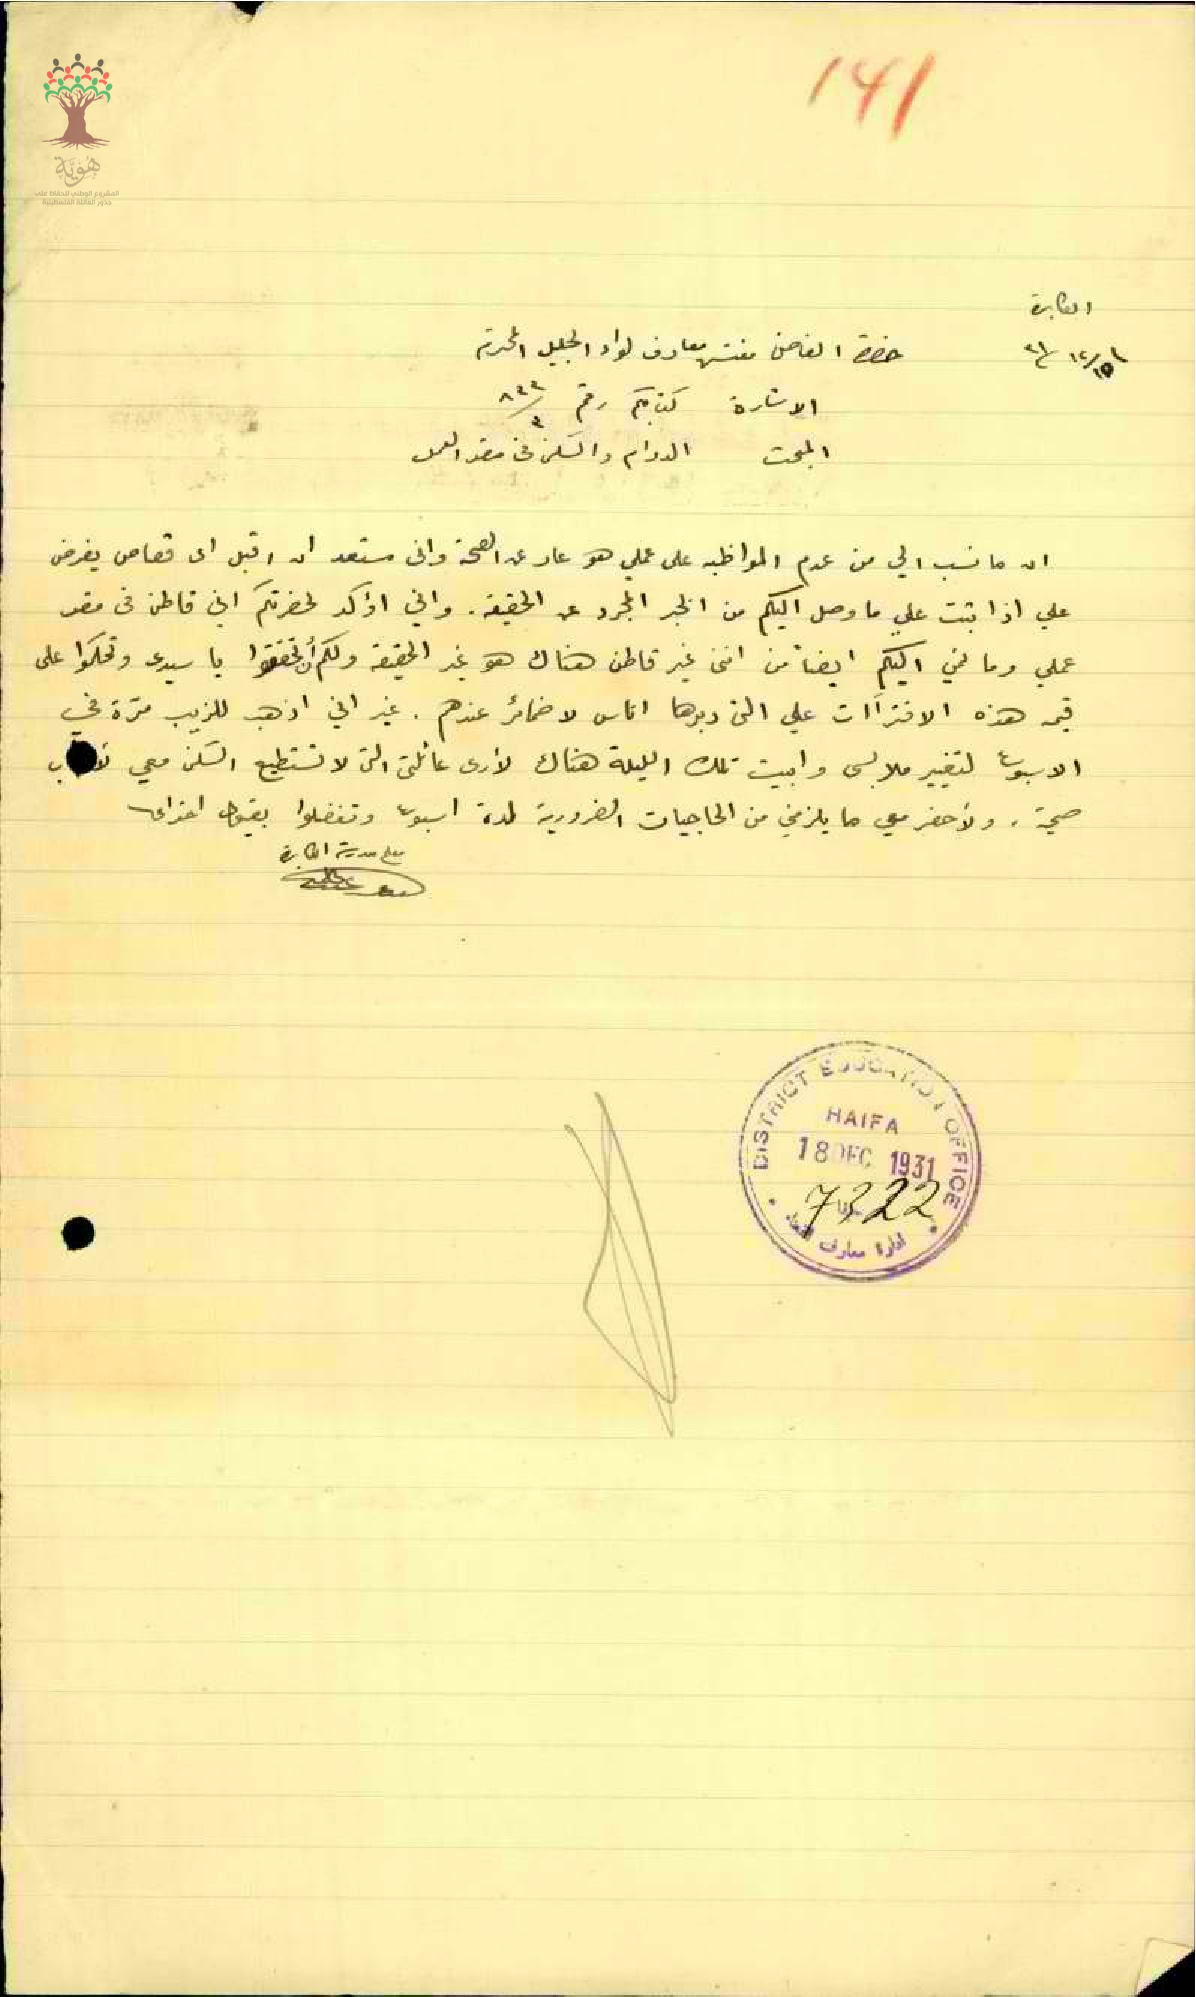 141
هُوِيَّة
المشروع الوطني للحفاظ على
جذور العائلة الفلسطينية
الكابرة
١٥/١٢/٣١
حضرة الفاضل مفتش معارف لواء الجليل المحترم
الاشارة كتابكم رقم ٣/٨٣٣
المبحث الدوام والسكن في مقر العمل
ان ما نسب الي من عدم المواظبه على عملي هو عار عن الصحة واني مستعد ان اقبل اى قصاص يفرض
علي اذا ثبت علي ما وصل اليكم من الخبر المجرد عن الحقيقة. واني اؤكد لحضرتكم اني قاطن في مقر
عملي وما نمي اليكم ايضاً من انني غير قاطن هناك هو غير الحقيقة ولكم أن تحققوا يا سيدى وتحكموا على
قيمة هذه الافتراآت علي التي دبرها اناس لا ضمائر عندهم. غير اني اذهب للزيب مرّة في
الاسبوع لتغيير ملابسى وابيت تلك الليلة هناك لأرى عائلتى التى لا تستطيع السكن معي
صحية. ولأحضر معي ما يلزمني من الحاجيات الضرورية لمدة اسبوع وتفضلوا بقبول احترامى
معلم مدرسة الكابرة
DISTRICT EDUCATION OFFICE
HAIFA
18 DEC 1931
7322
ادارة معارف